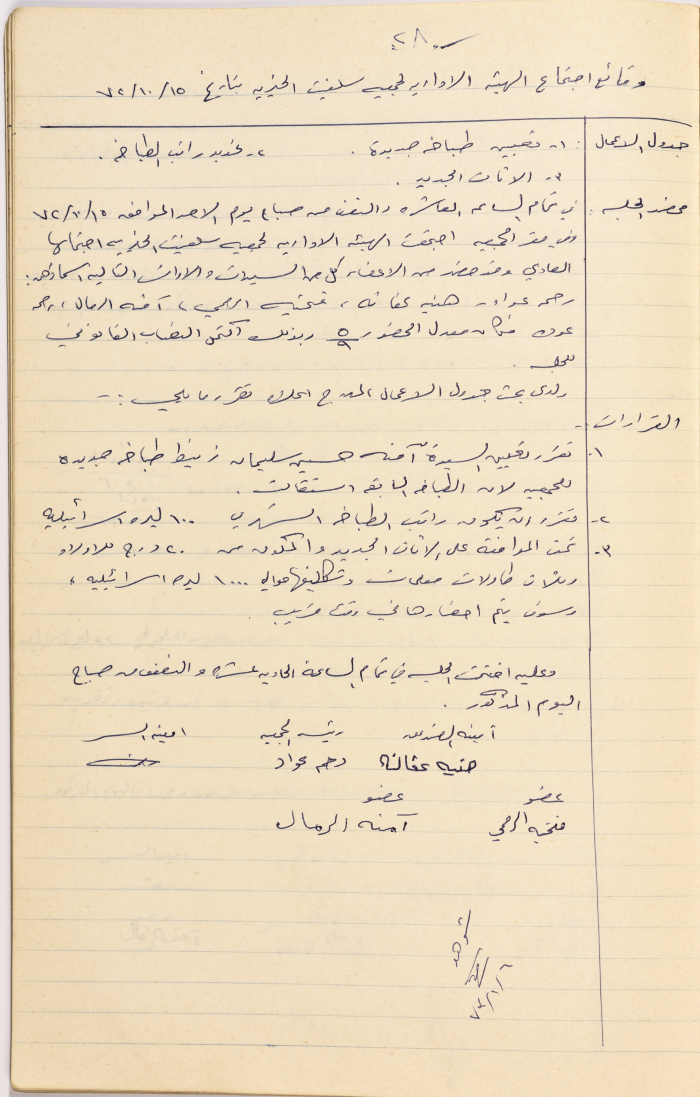 ٢٨
وقائع اجتماع الهيئة الادارية لجمعية سلفيت الخيرية بتاريخ ٧٢/١٠/١٥
جدول الاعمال : ١- تعيين طباخه جديدة . ٢- تحديد راتب الطباخه .
٣- الاثاث الجديد .
محضر الجلسه : في تمام الساعه العاشره والنصف من صباح يوم الاحد الموافق ٧٢/١٠/١٥
وفي مقر الجمعيه اجتمعت الهيئة الادارية لجمعيه سلفيت الخيريه اجتماعها
العادي وقد حضر من الاعضاء كل من السيدات والاوانس التاليه اسماؤهن :
رحمه عواد ، هنيه عفانه ، فتحيه ، آمنه الرمال ، رحمه
عوده فكان معدل الحضور ٥/٩ وبذلك اكتمل النصاب القانوني
للجلسه .
ولدى بحث جدول الاعمال المدرج اعلاه تقرر ما يلي :-
القرارات :-
١- تقرر تعيين السيدة آمنه حسين سليمان طباخه جديده
للجمعيه لان الطباخه السابقه استقالت .
٢- تقرر ان يكون راتب الطباخه الشهري ١٠٠ ليره اسرائيليه
٣- تمت الموافقة على الاثاث الجديد والمكون من ٢٠ درج للاولاد
وثلاث طاولات معلمات وتكاليفها حوالي ١٠٠٠ ليره اسرائيليه ،
وسوف يتم احضارها في وقت قريب .
وعليه اختتمت الجلسه في تمام الساعة الحاديه عشره والنصف من صباح
اليوم المذكور .
أمينه الصندوق رئيسه الجمعيه امينه السر
هنيه عفانه رحمه عواد
عضو عضو
فتحيه آمنه الرمال